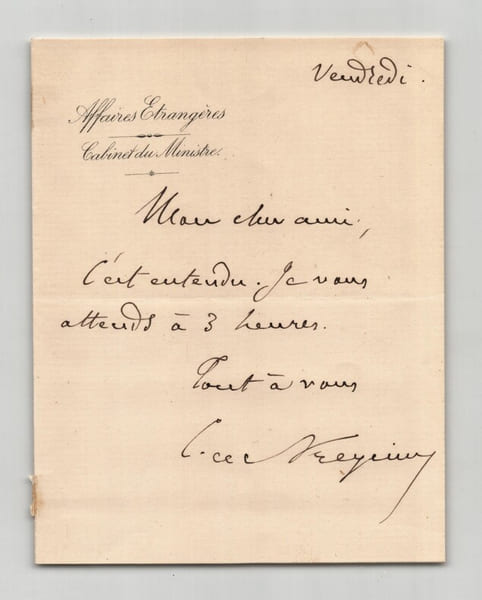 Vendredi.
Affaires Etrangères
Cabinet du Ministre.
Mon cher ami,
C'est entendu. Je vous
attends à 3 heures.
Tout à vous
C. de Freycinet